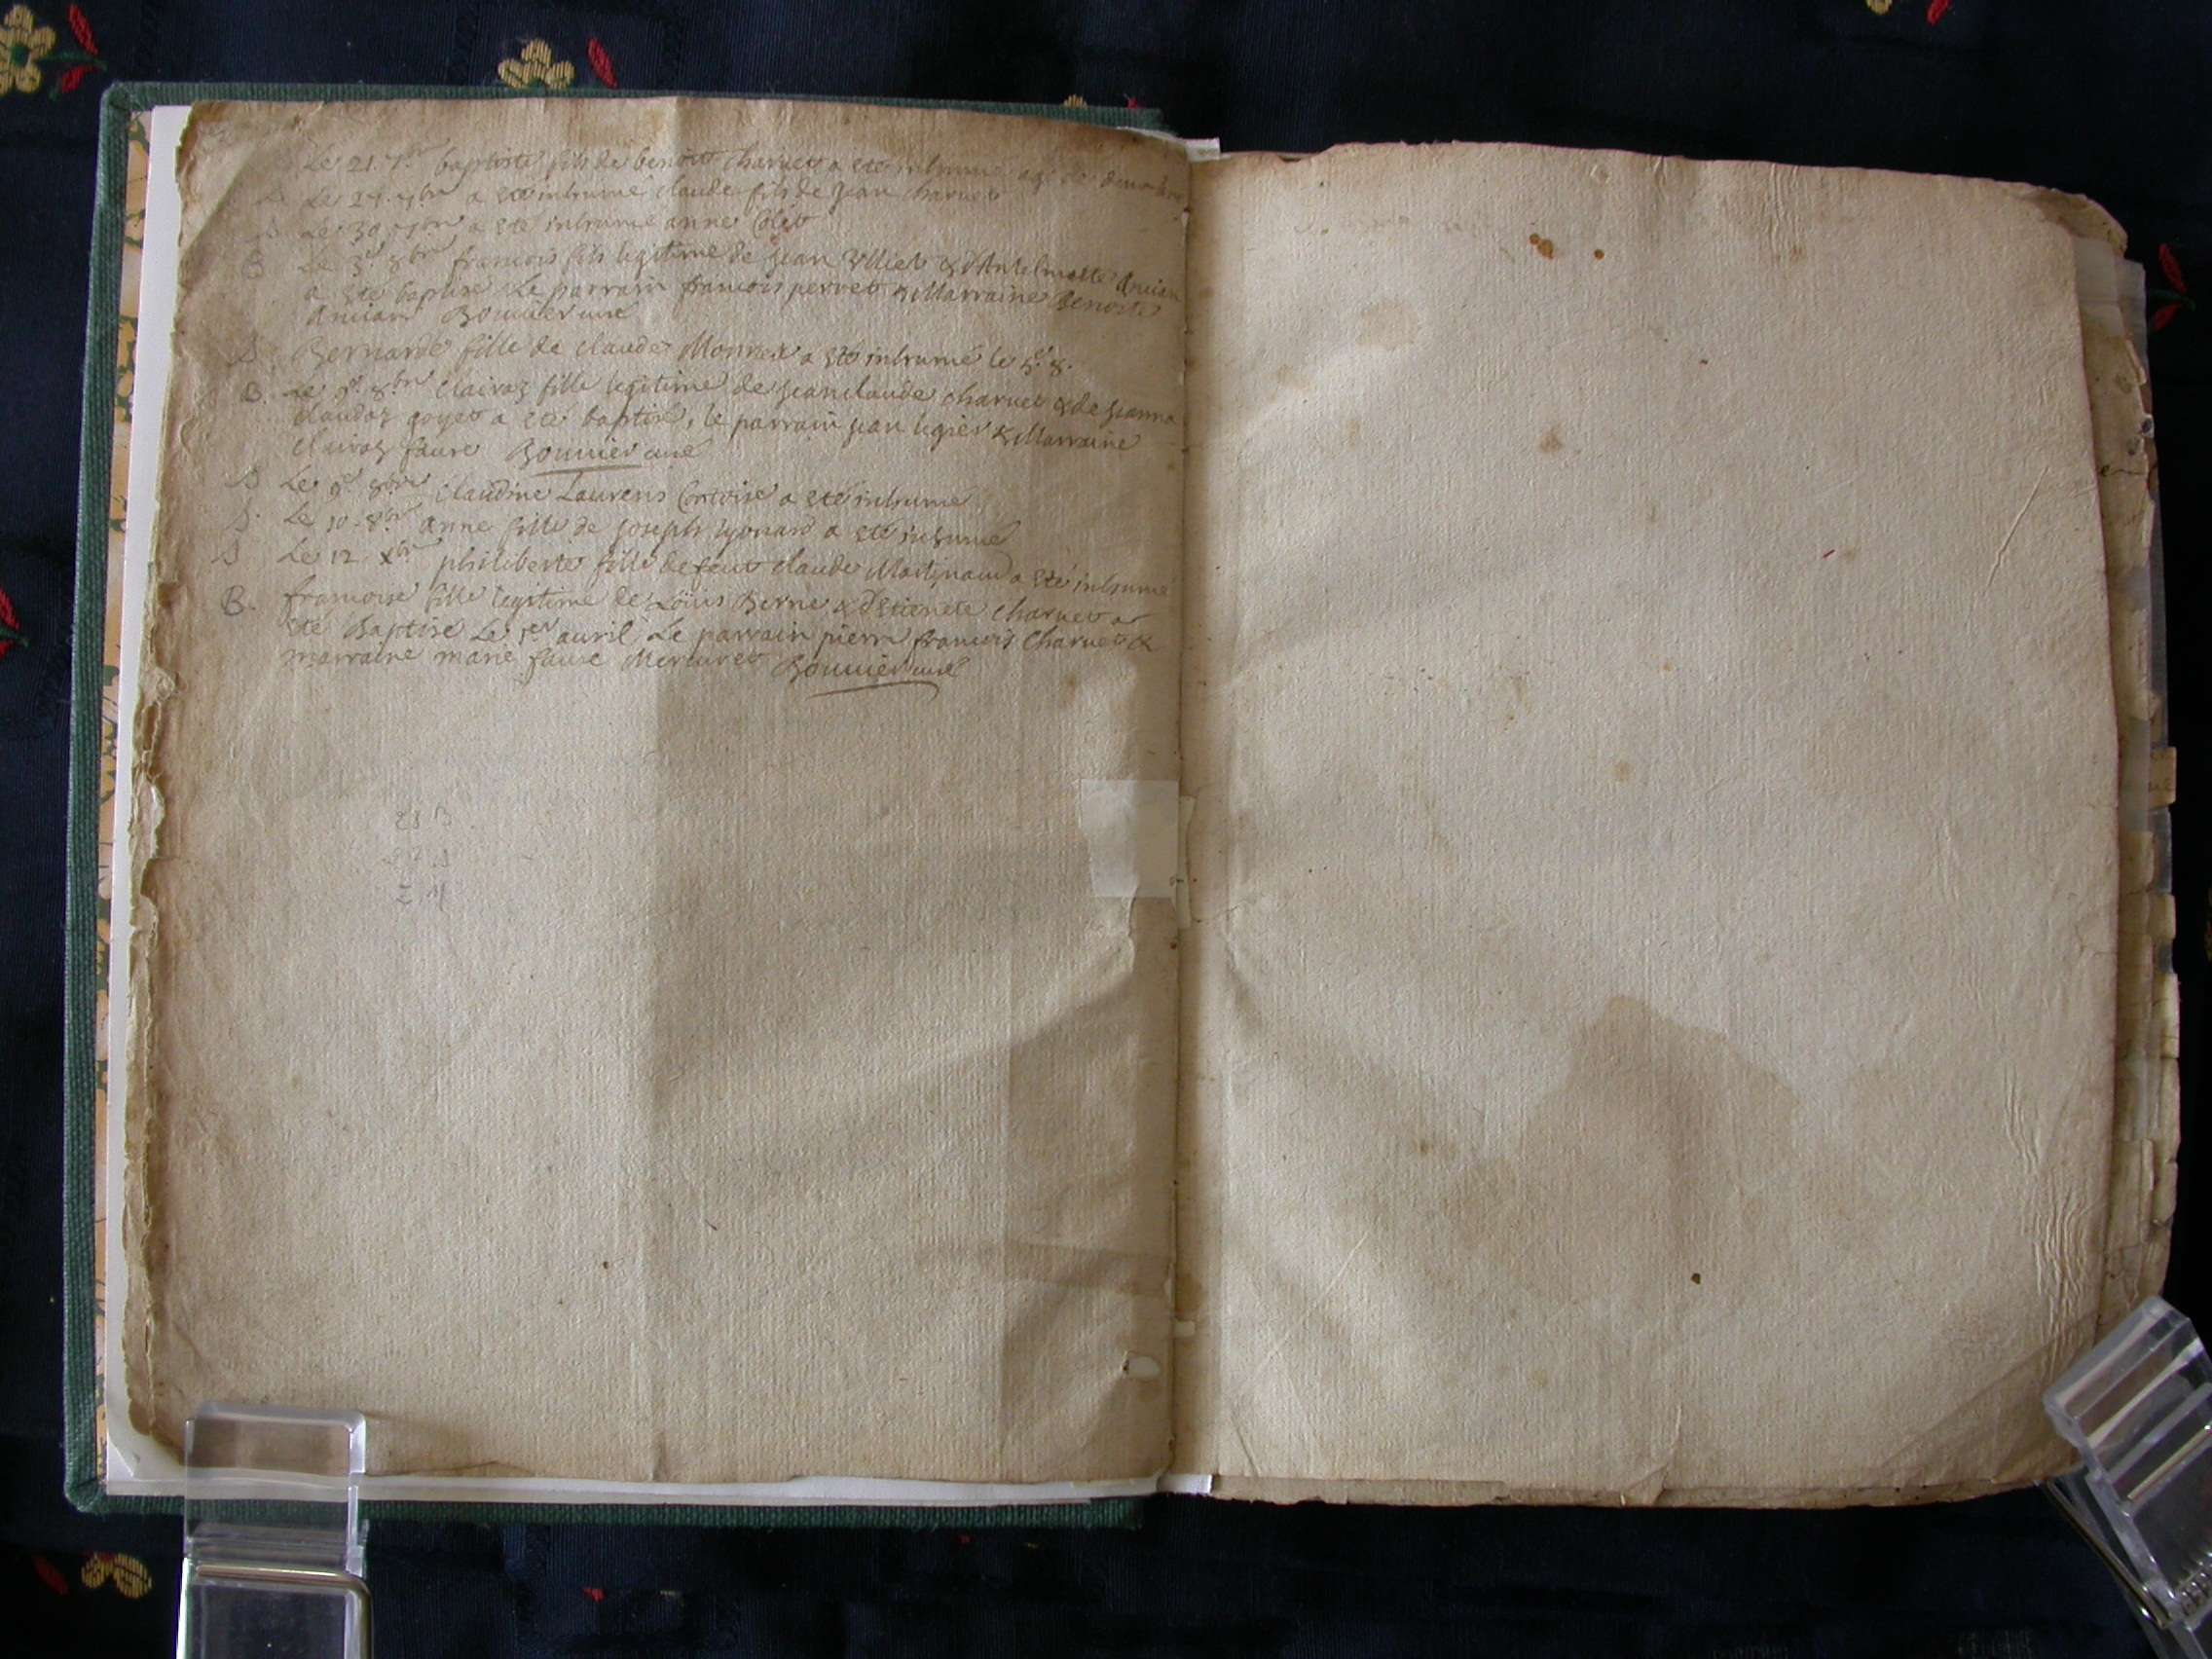 Le 21. 7bre baptiste fils de benoit charvet a eté inhumé agé de
S Le 27. 7bre a eté inhumé claude fils de jean charvet
S Le 30 7bre a eté inhumé anne Colet
B Le 3e 8bre francois fils legitime de jean & d'Antelmette
a eté baptisé Le parrain francois perret & Marraine benoite
Bouvier curé
S Bernarde fille de claude Monnet a eté inhumé le 5e 8.
B. Le 9e 8bre Clairaz fille legitime de jeanclaude charvet & de jeanne
claudaz goyet a eté baptisé, le parrain jean legier & Marraine
clairaz faure Bouvier curé
S Le 9e 8bre Claudine Laurens a eté inhumé
S. Le 10. 8bre anne fille de joseph lyonard a eté inhumé
S Le 12 Xbre philiberte fille de feut claude a eté inhumé
B. francoise fille legitime de Loüis Berne & d'Etienete Charvet a
eté Baptisé Le 1er avril Le parrain pierre francois Charvet &
marraine marie faure Mercuret Bouvier curé
23 B
S
2 M